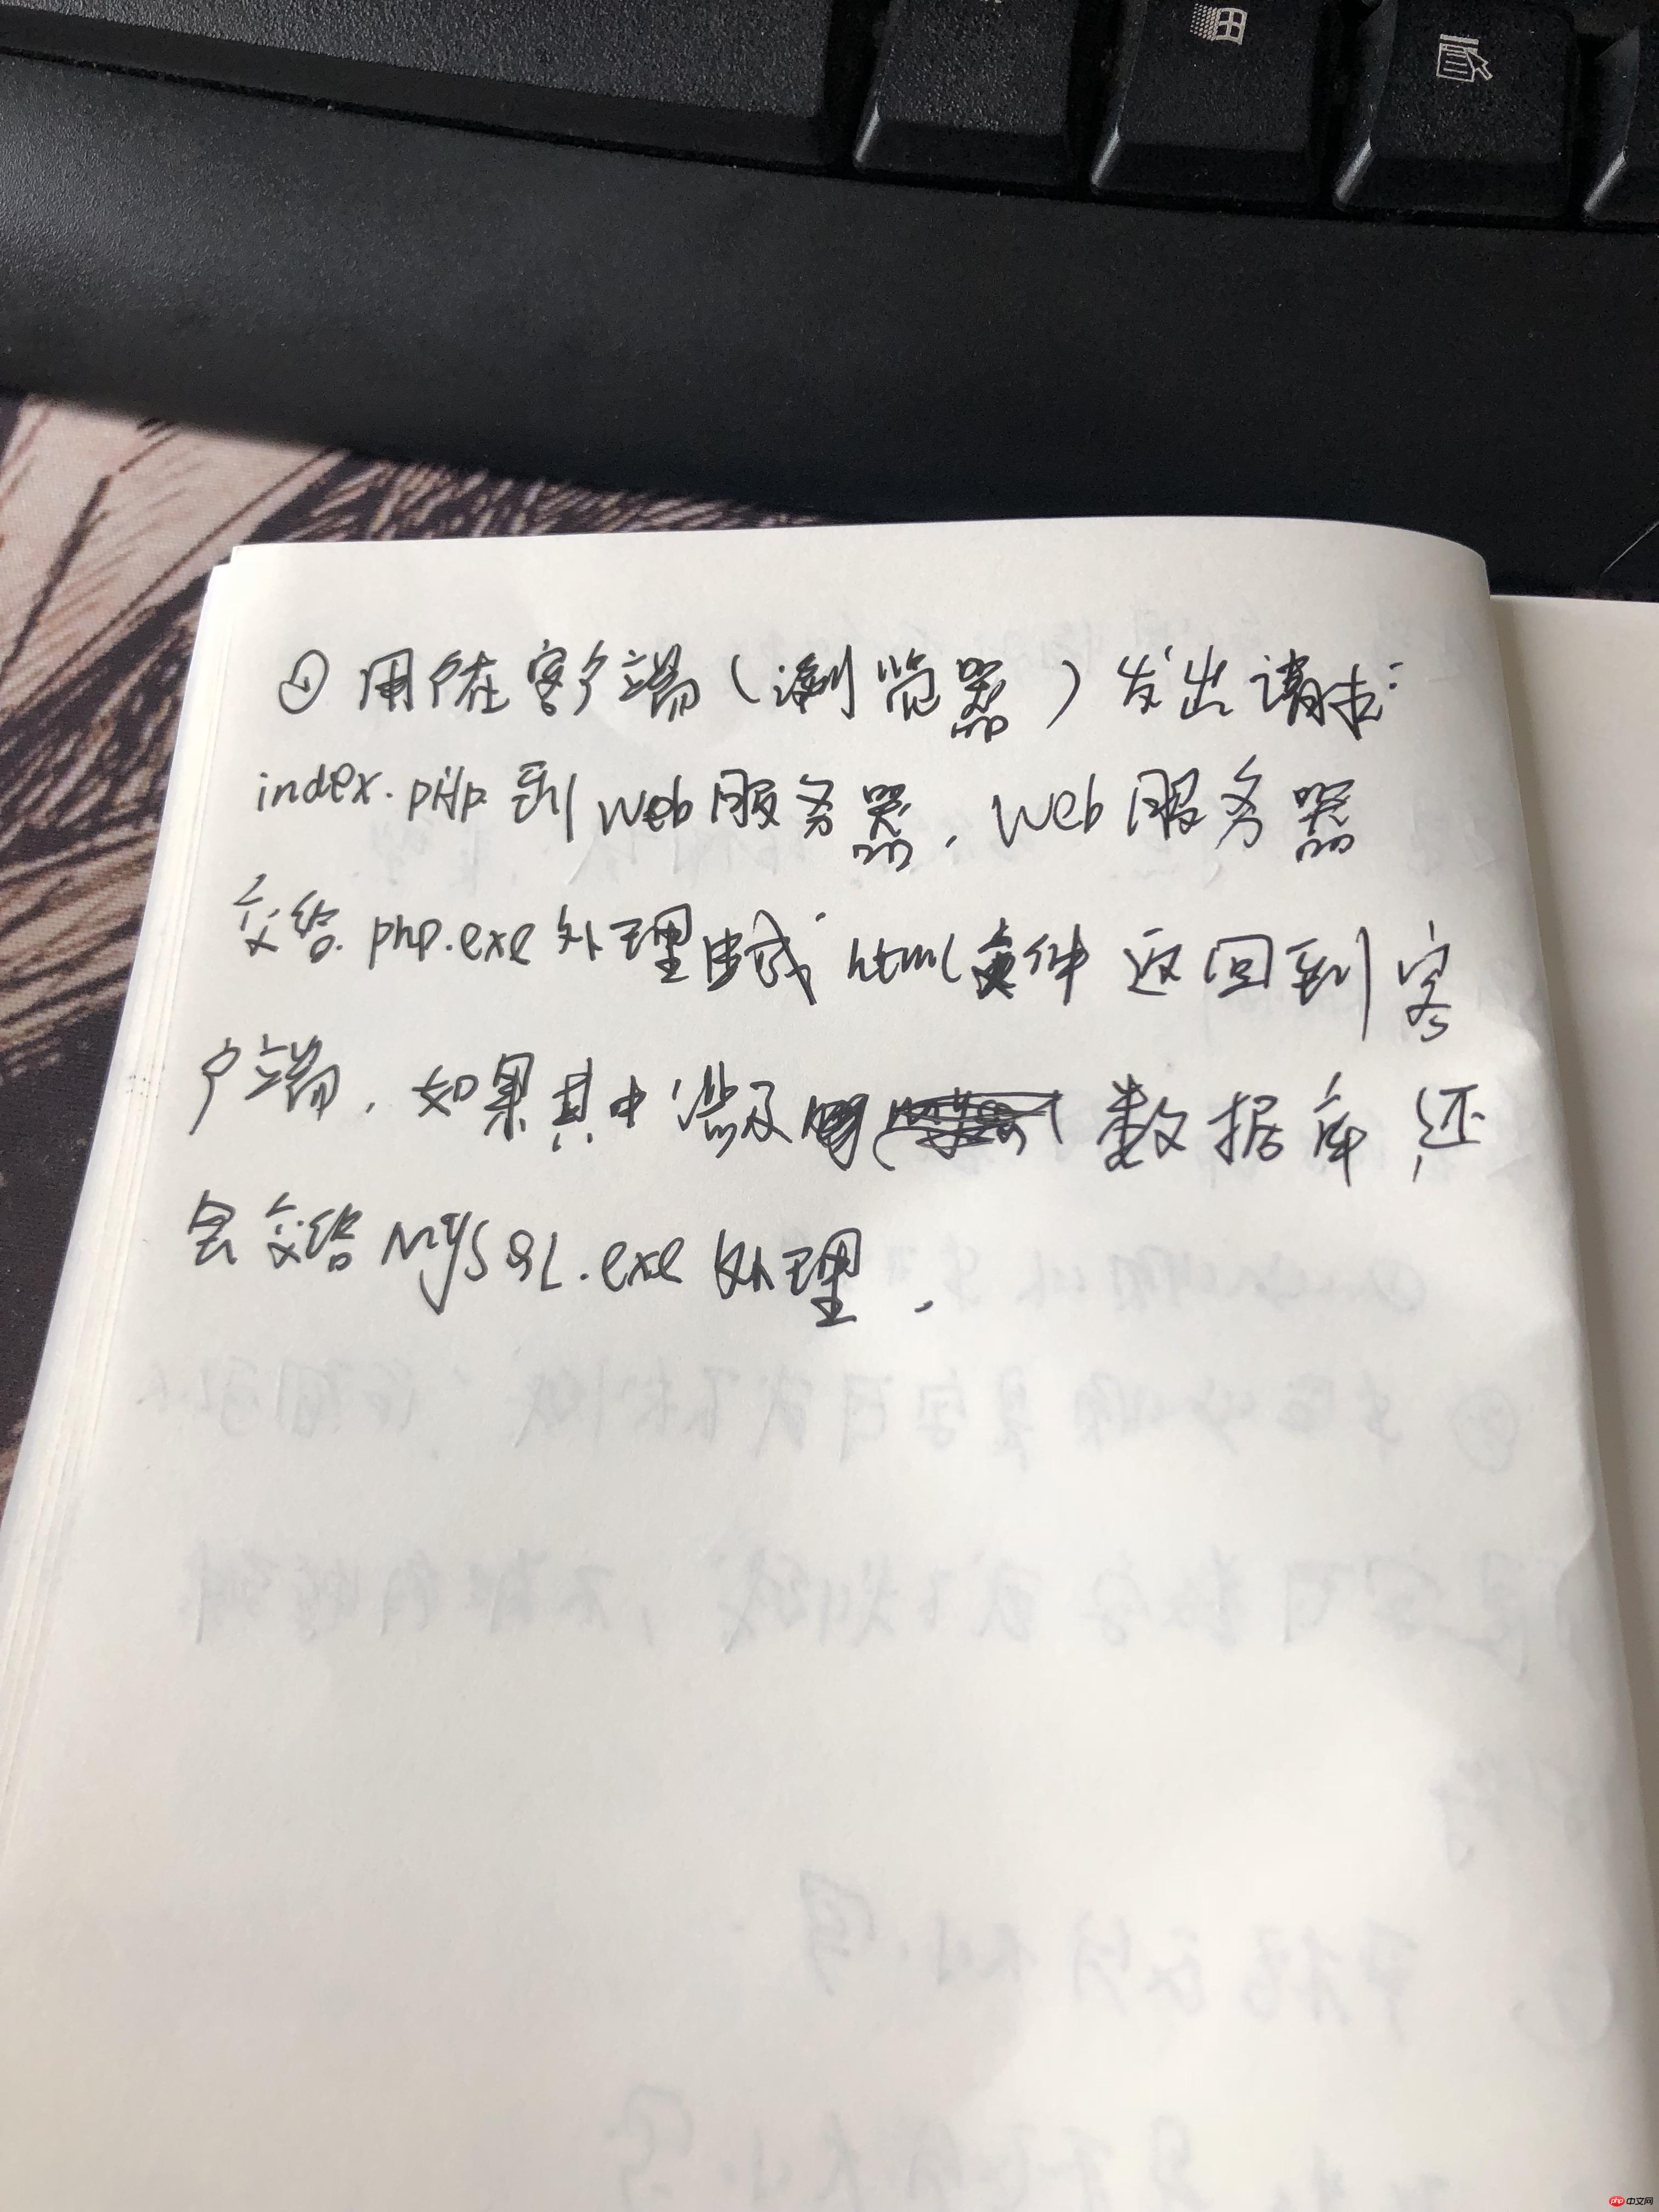 ① 用户在客户端(浏览器)发出请求:
index.pHp 到 Web服务器, Web 服务器
交给 php.exe 处理 生成 html文件 返回到客
户端, 如果其中涉及 数据库 还
会交给 MySQL.exe 处理,
php 中文网